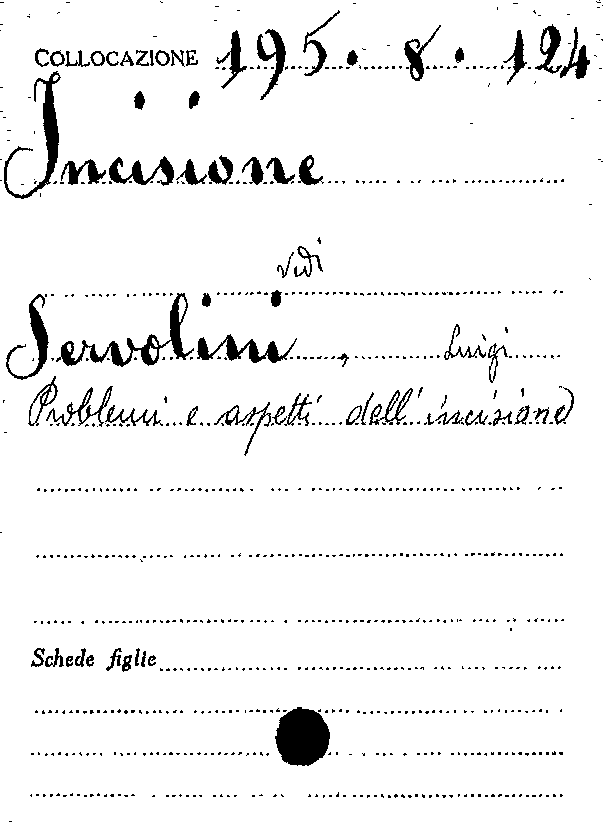 COLLOCAZIONE 195. 8. 124
Incisione
vidi
Servolini, Luigi
Problemi e aspetti dell'incisione
Schede figlie